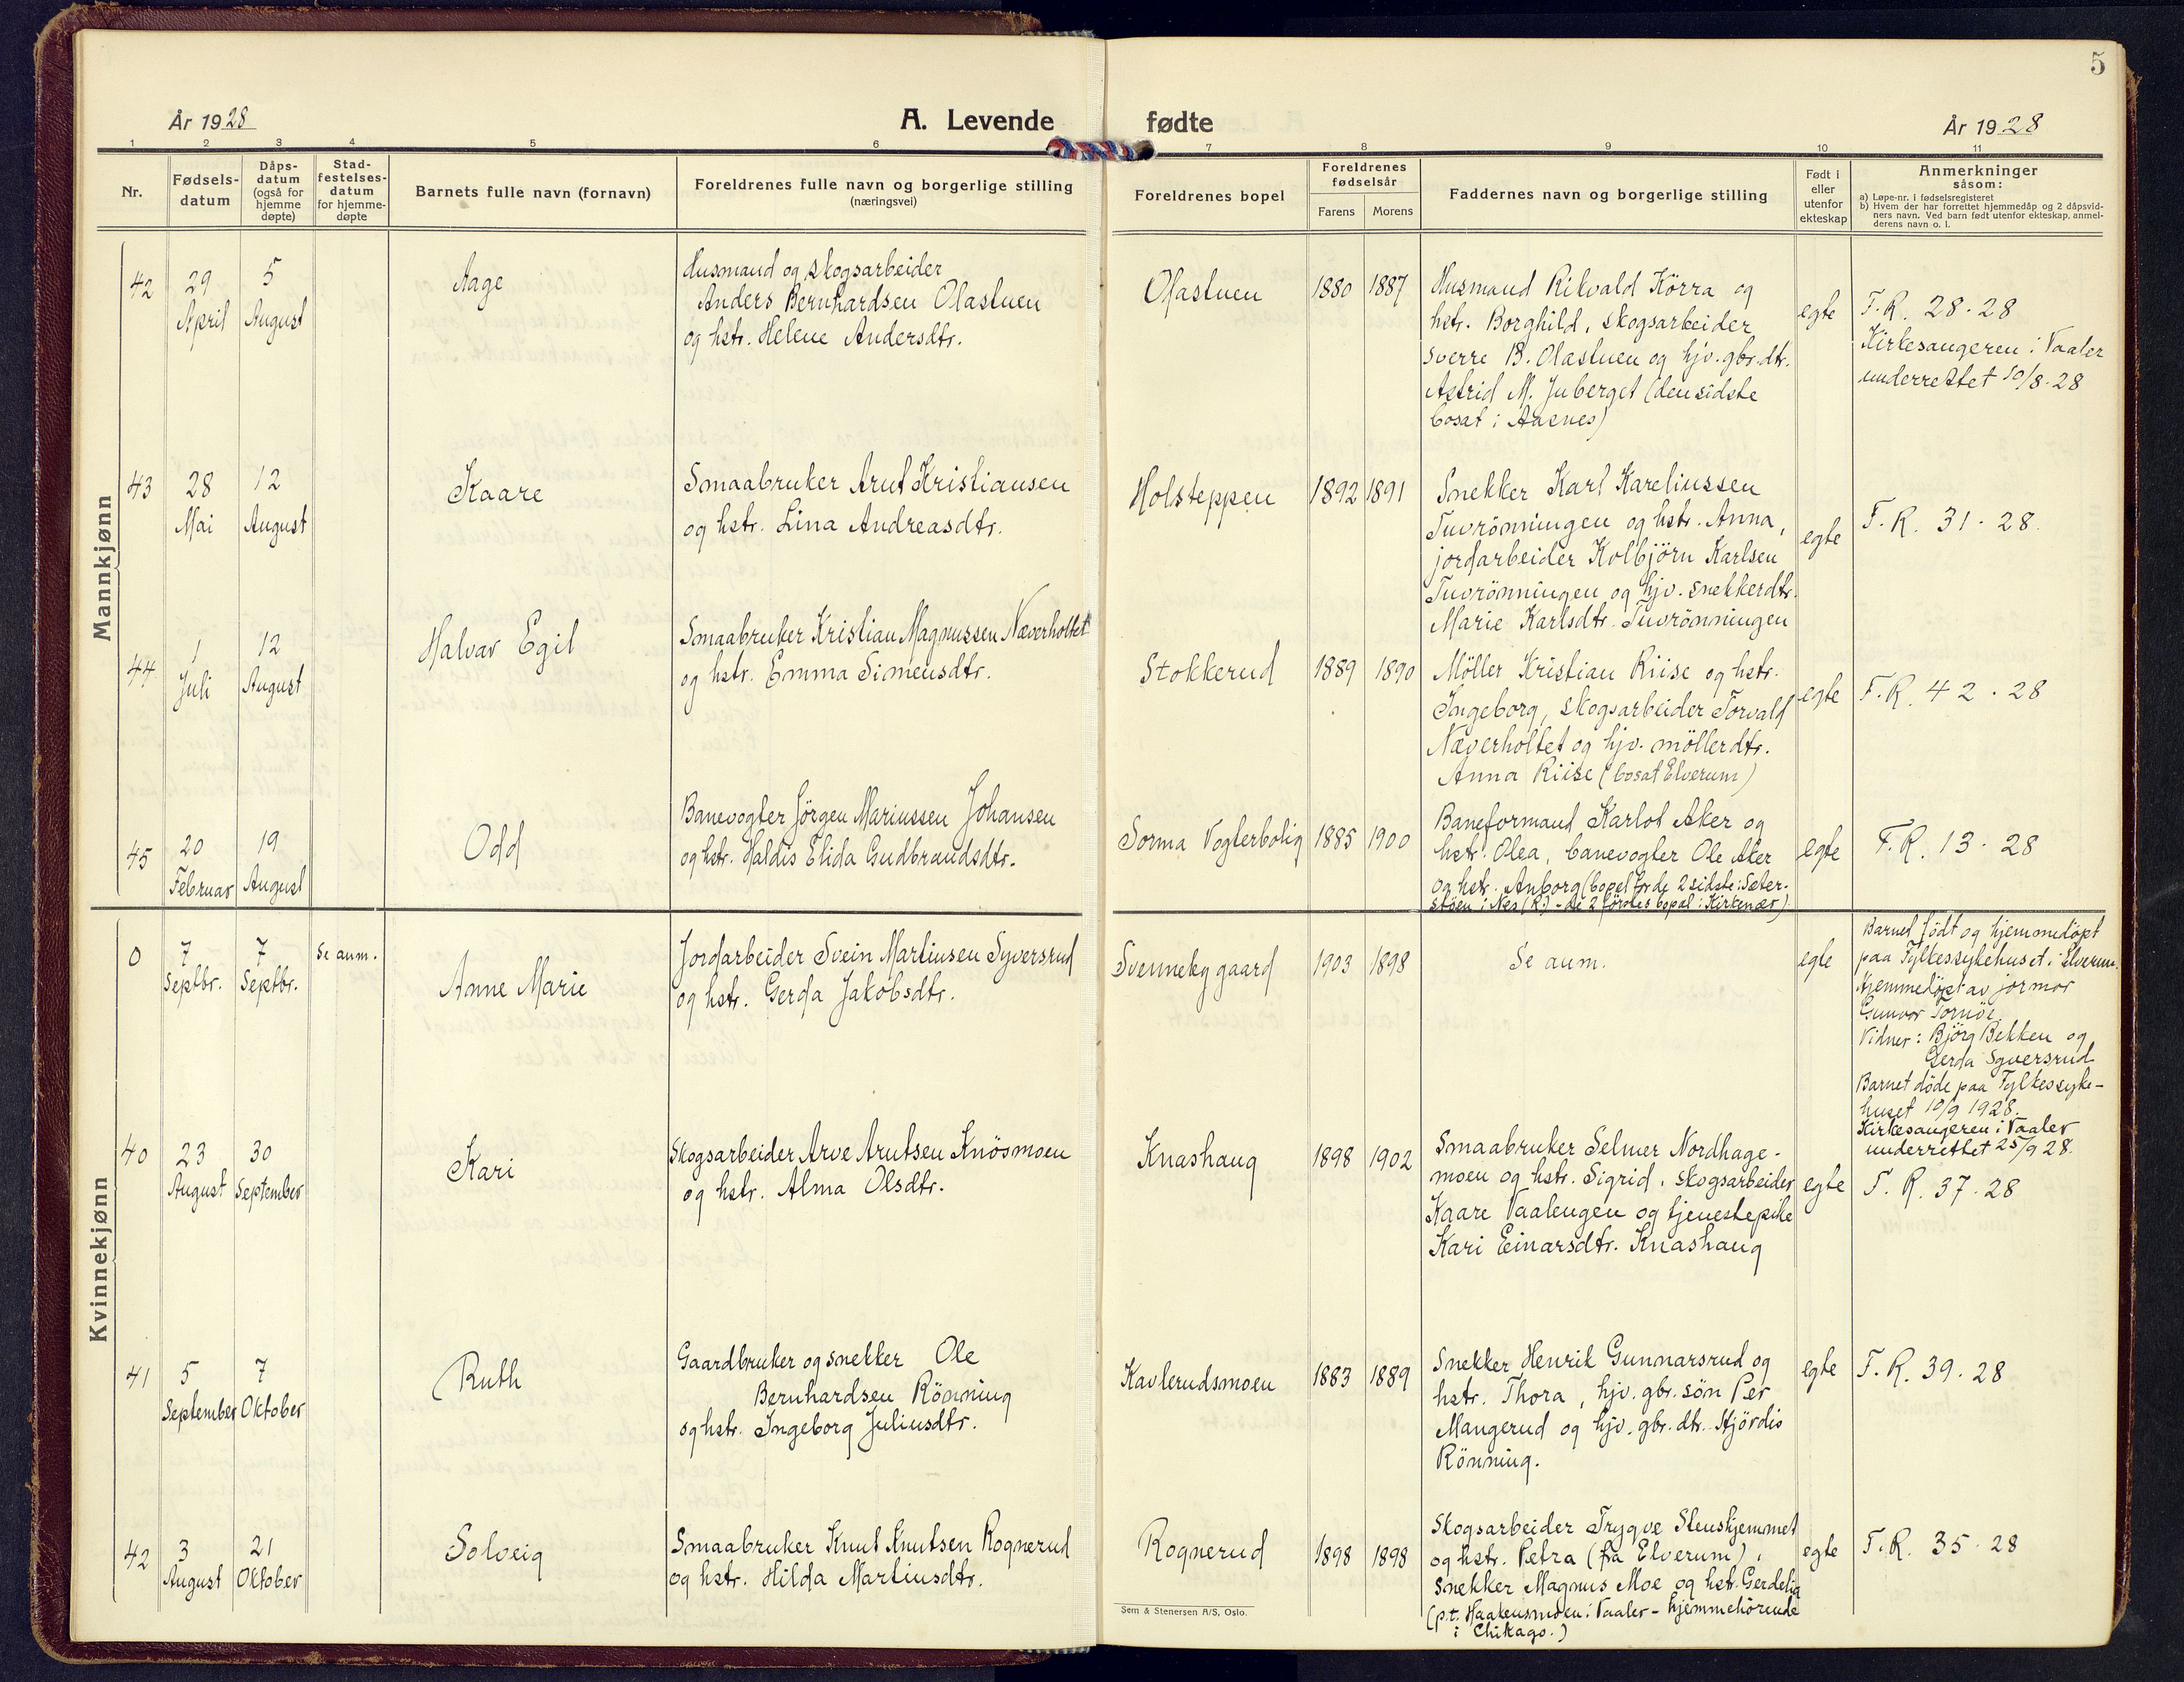 5
År 1928
A. Levende
fødte
År 1928
1 2 3 4 5 6 7 8 9 10 11
Nr.
Fødsels-
datum
Dåps-
datum
(også for
hjemme
døpte)
Stad-
festelses-
datum
for hjemme-
døpte
Barnets fulle navn (fornavn)
Foreldrenes fulle navn og borgerlige stilling
(næringsvei)
Foreldrenes bopel
Foreldrenes
fødselsår
Farens
Morens
Faddernes navn og borgerlige stilling
Født i
eller
utenfor
ekteskap
Anmerkninger
såsom:
a) Løpe-nr. i fødselsregisteret
b) Hvem der har forrettet hjemmedåp og 2 dåpsvid-
ners navn. Ved barn født utenfor ekteskap, anmel-
derens navn o. l.
Mannkjønn
42
29
April
5
August
Aage
Husmand og skogsarbeider
Anders Bernhardsen Olastuen
og hstr. Helene Andersdtr.
Olastuen
1880
1887
Husmand Rikvald Körra og
hstr. Borghild, skogsarbeider
Sverre B. Olastuen og hjv. gbr. dtr.
Astrid M. Juberget (den sidste
bosat i Aasnes)
egte
F. R. 28 - 28
Kirkesangeren i Vaaler
underrettet 10/8 - 28
43
28
Mai
12
August
Kaare
Smaabruker Arut Kristiansen
og hstr. Lina Andreasdtr.
Holsteppen
1892
1891
Snekker Karl Kareliussen
Tuvrönningen og hstr. Anna,
jordarbeider Kolbjörn Karlsen
Tuvrönningen og hjv. snekkerdtr.
Marie Karlsdtr. Tuvrönningen
egte
F. R. 31 - 28.
44
1
Juli
12
August
Halvar Egil
Smaabruker Kristian Magnussen Næverholtet
og hstr. Emma Simensdtr.
Stokkerud
1889
1890
Möller Kristian Riise og hstr.
Ingeborg, skogsarbeider Torvald
Næverholtet og hjv. möllerdtr.
Anna Riise (bosat Elverum)
egte
F. R. 42 - 28
45
20
Februar
19
August
Odd
Banevogter Jörgen Mariussen Johansen
og hstr. Haldis Elida Gudbrandsdtr.
Sorma Vogterbolig
1885
1900
Baneformand Karlot Aker og
hstr. Olea, banevogter Ole Aker
og hstr. Anborg (bopel for de 2 sidste: Seter-
stöen i Nes (R.) - de 2 förstes bopal: Kirkenær)
egte
F. R. 13 - 28
Kvinnekjønn
0
7
Septbr.
7
Septbr.
Se anm.
Anne Marie
Jordarbeider Svein Martinsen Syversrud
og hstr. Gerda Jakobsdtr.
Svenneby gaard
1903
1898
Se anm.
egte
Barnet födt og hjemmedöpt
paa Fylkessykehuset i Elverum.
Hjemmedöpt av jormor
Gunvor Tornöe.
Vidner: Björg Bekken og
Gerda Syversrud
Barnet döde paa Fylkessyke-
huset 10/9 1928.
Kirkesangeren i Vaaler
underrettet 25/9 28.
40
23
August
30
September
Kari
Skogsarbeider Arve Arutsen Knösmoen
og hstr. Alma Olsdtr.
Knashaug
1898
1902
Smaabruker Selmer Nordhage-
moen og hstr. Sigrid, skogsarbeider
Kaare Vaalengen og tjenestepike
Kari Einarsdtr. Knashaug
egte
F. R. 37 - 28
41
5
September
7
Oktober
Ruth
Gaardbruker og snekker Ole
Bernhardsen Rönning
og hstr. Ingeborg Juliusdtr.
Kavlerudsmoen
1883
1889
Snekker Henrik Gunnarsrud og
hstr. Thora, hjv. gbr. søn Per
Mangerud og hjv. gbr. dtr. Hjördis
Rönning.
egte
F. R. 39 - 28
42
3
August
21
Oktober
Solveig
Smaabruker Knut Knutsen Rognerud
og hstr. Hilda Martinsdtr.
Rognerud
1898
1898
Skogsarbeider Trygve Stenshjemmet
og hstr. Petra (fra Elverum),
snekker Magnus Moe og hstr. Gerdelia
(p.t. Haakensmoen i Vaaler - hjemmehörende
i Chikago.)
egte
F. R. 35 - 28
Sem & Stenersen A/S, Oslo.